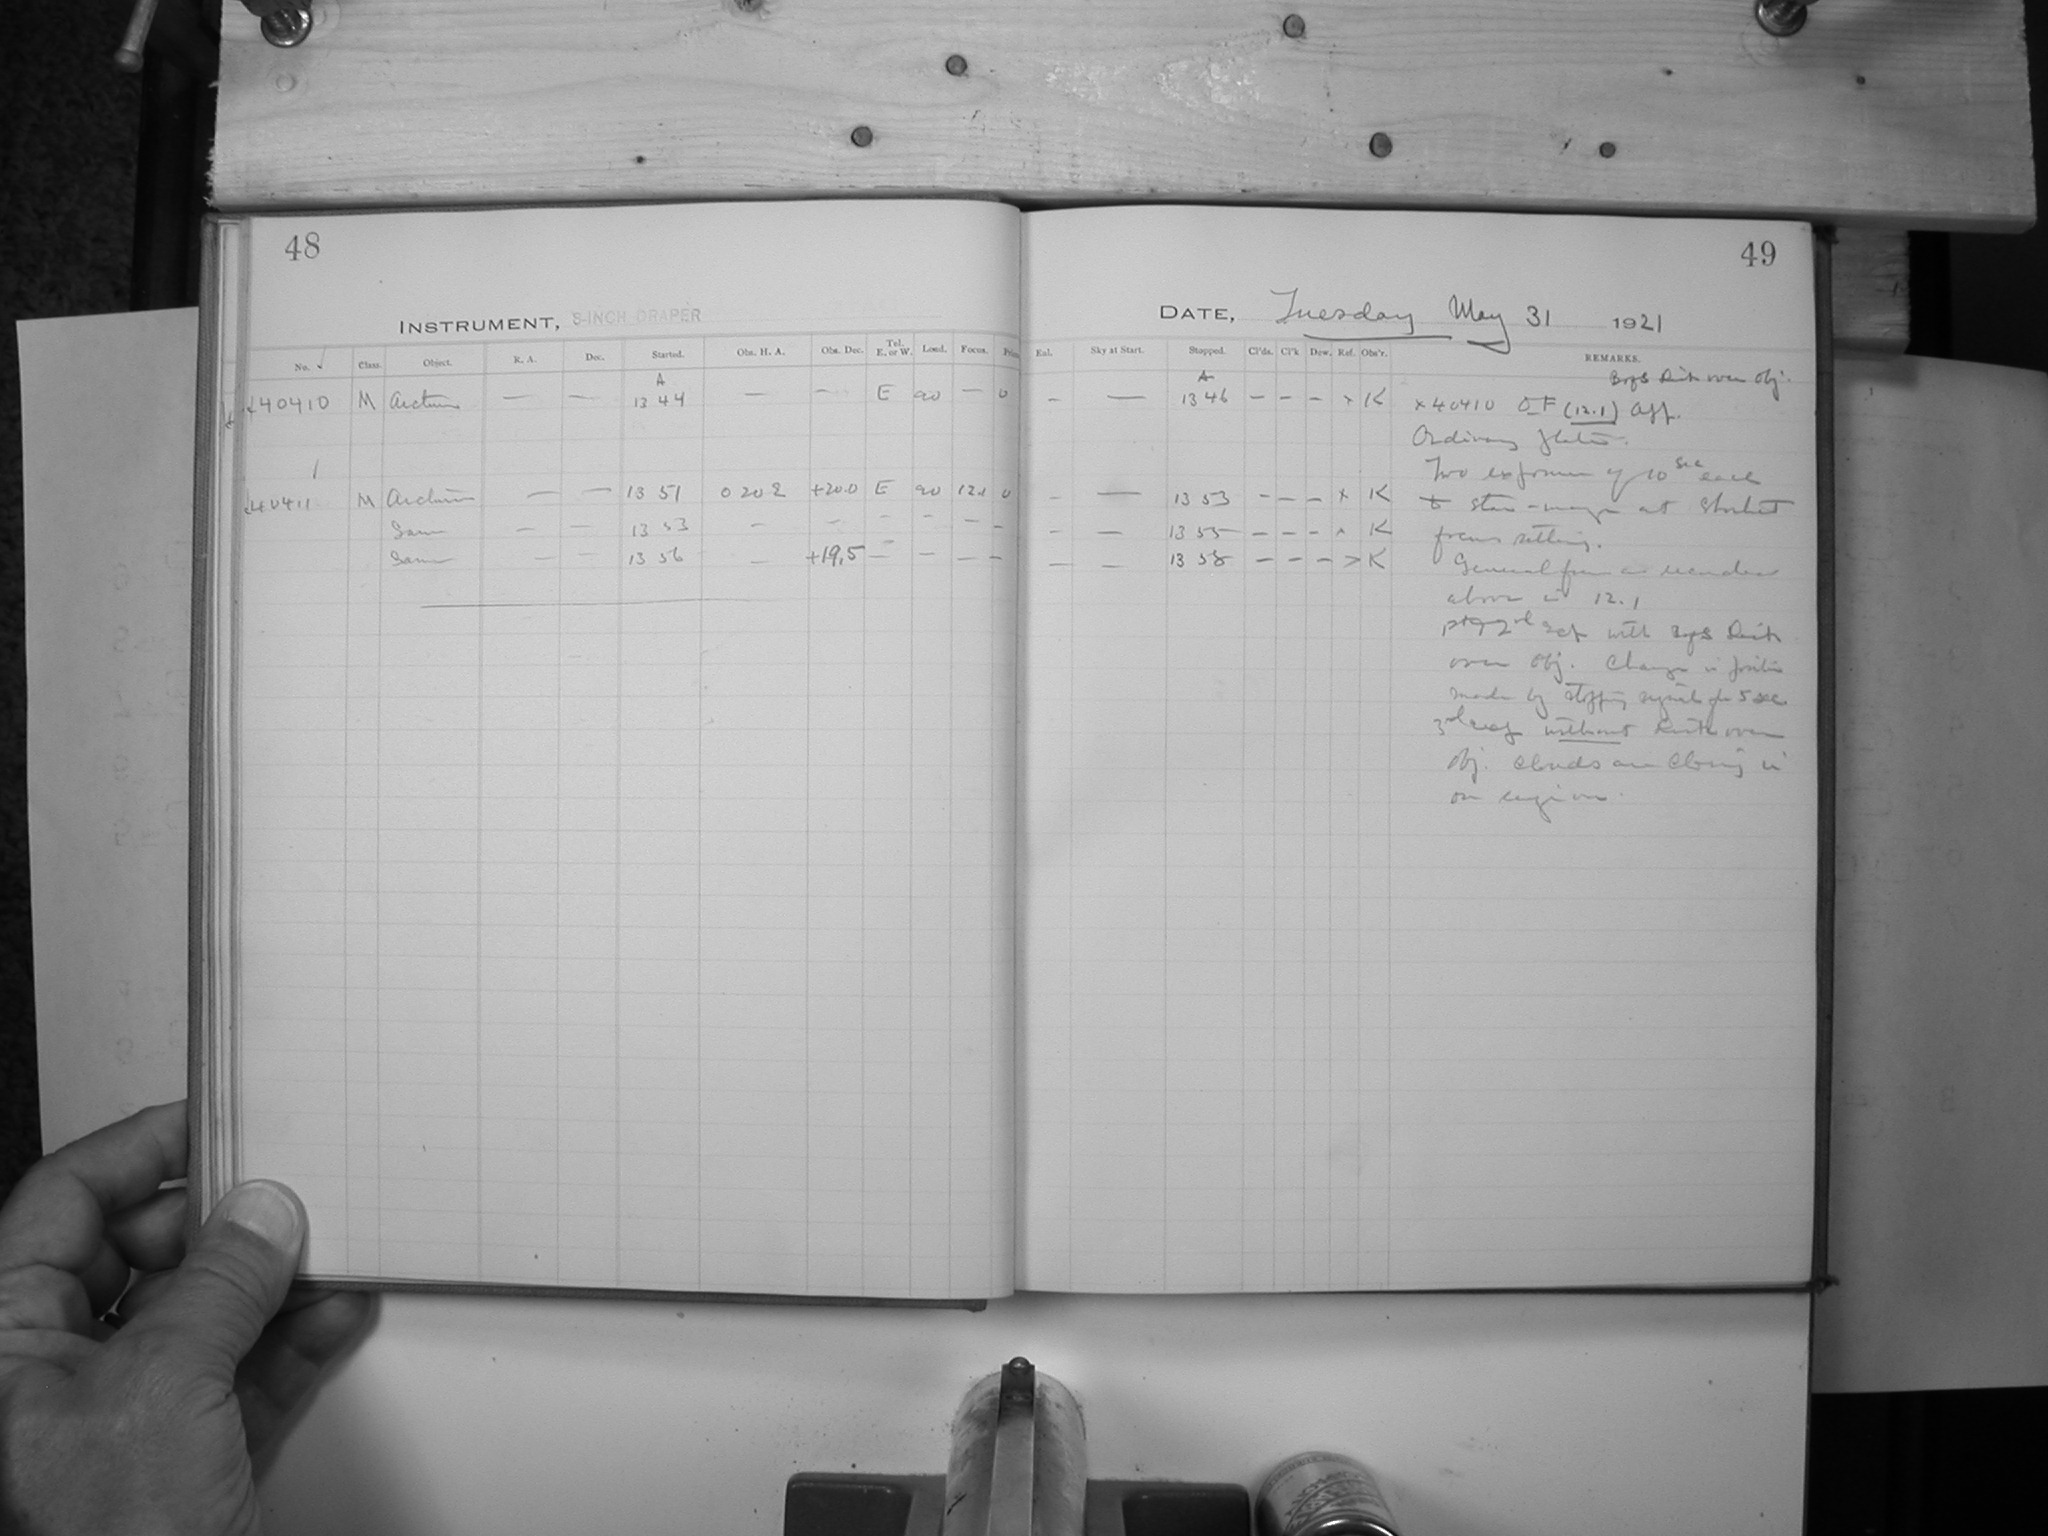 48
49
INSTRUMENT, 8-INCH DRAPER
DATE, Tuesday May 31 1921
No. Class. Object. R. A. Dec. Started. Obs. H. A. Obs. Dec. Tel. E. or W. Load. Focus. Prism
Eal. Sky at Start. Stopped. Cl'ds. Cl'k Dew. Ref. Obs'r. REMARKS.
A
A
over Obj.
40410 M Arcturus — — 13 44 — — E 90 — 0
– — 13 46 – – – × K × 40410 O F (12.1) Aff.
Ordinary
Two exposures of 10 sec each
40411 M Arcturus — — 13 51 0 20 E +20.0 E 90 12.1 0
– — 13 53 – – – × K at Shortest
Same — — 13 53 – – – – – –
– — 13 55 – – – × K focus setting.
Same — — 13 56 – +19,5 – – – –
– — 13 58 – – – > K General focus as recorded
above is 12.1
with
over Obj. Change in position
made by stopping for 5 sec
3rd without over
Obj. Clouds are closing in
on